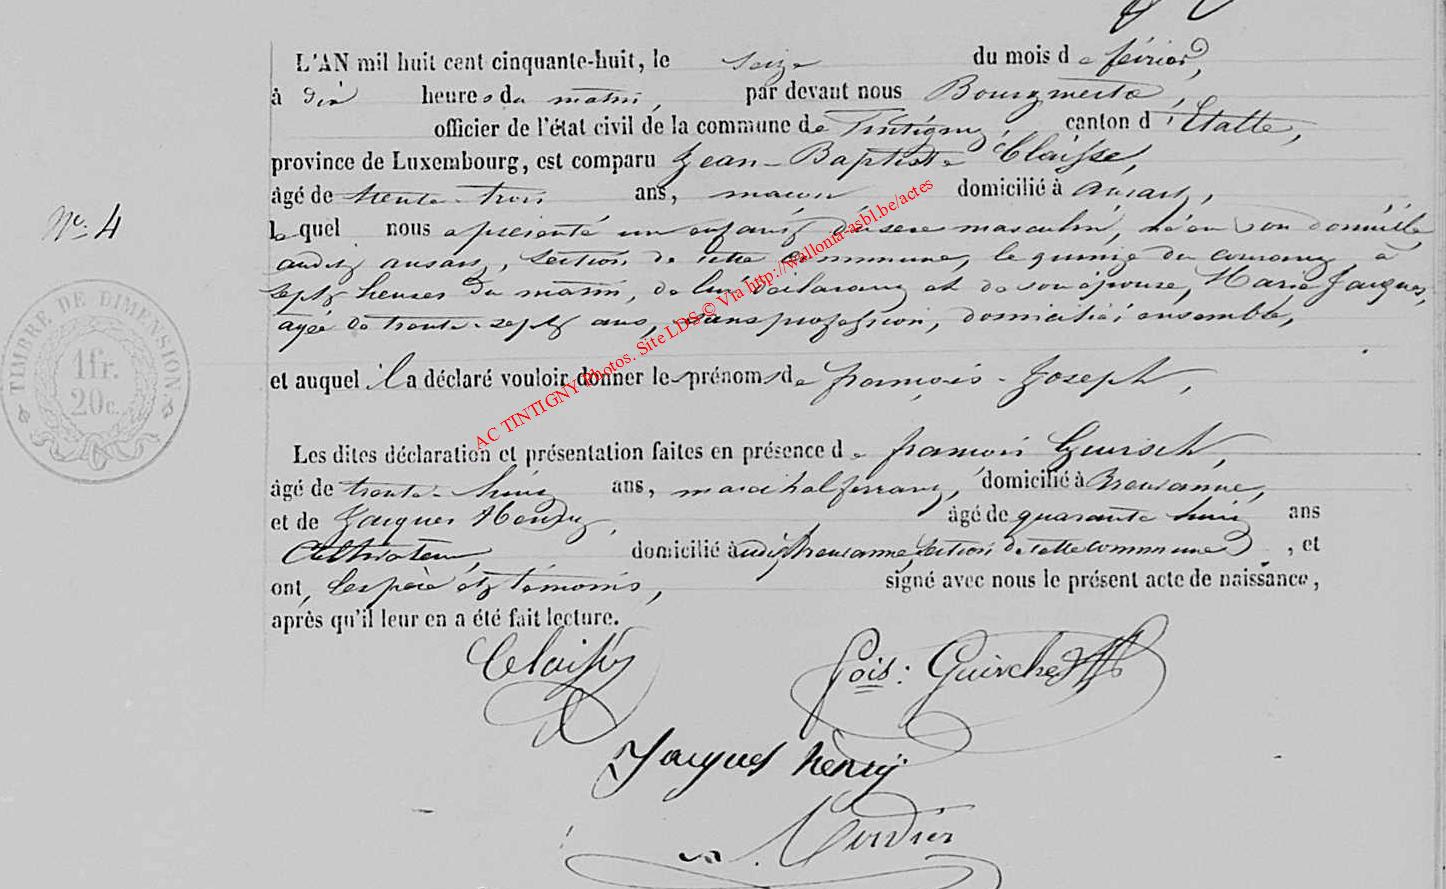 L'AN mil huit cent cinquante-huit, le seize du mois de février,
à dix heures du matin, par devant nous Bourgmestre,
officier de l'état civil de la commune de Tintigny, canton d'Etalle,
province de Luxembourg, est comparu Jean-Baptiste Claisse,
âgé de trente-trois ans, maçon domicilié à ansart,
N° 4
lequel nous a présenté un enfant du sexe masculin, né en son domicile
audit ansart, section de cette commune, le quinze du courant, à
sept heures du matin, de lui déclarant et de son épouse, Marie Jacques,
agée de trente-sept ans, sans profession, domiciliés ensemble,
TIMBRE DE DIMENSION.
1 fr.
20 c.
et auquel il a déclaré vouloir donner les prénoms de françois-Joseph,
Les dites déclaration et présentation faites en présence de françois
âgé de trente-huit ans, maréchal ferrant, domicilié à Breuvanne,
et de Jacques Henry, âgé de quarante huit ans
Cultivateur, domicilié audit Breuvanne, section de cette commune, et
ont, les père et témoins, signé avec nous le présent acte de naissance,
après qu'il leur en a été fait lecture.
Claisse
fois: Guirsch
Jacques hènry
AC TINTIGNY Photos. Site LDS © Via http://wallonia-asbl.be/actes